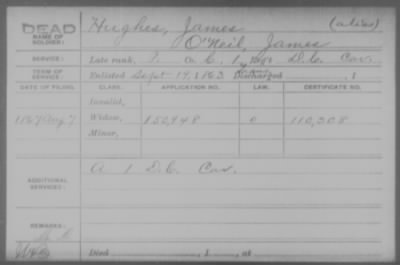 DEAD
NAME OF SOLDIER:
Hughes, James (alias)
O'Neil, James
SERVICE:
Late rank, P. Co. C, 1 Reg't D.C. Cav.
TERM OF SERVICE:
Enlisted Sept 19, 1863 Discharged , 1
DATE OF FILING. CLASS. APPLICATION NO. LAW. CERTIFICATE NO.
Invalid,
1867 Aug 7. Widow, 150,948 0 110,308
Minor,
ADDITIONAL SERVICES:
A 1 D.C. Cav.
REMARKS:
Died , 1 , at